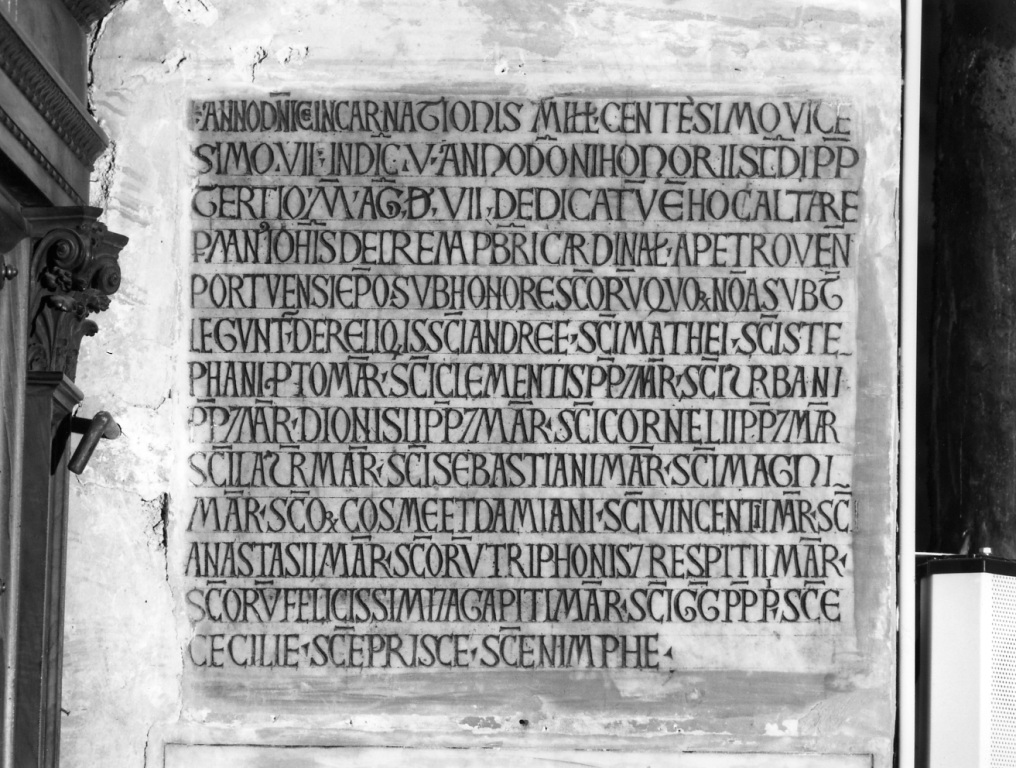 ANNO DNICE INCARNATIONIS MILL CENTESIMO VICE
SIMO VII INDIC V ANNO DONI HONORII SCDI PP
TERTIO M MAG D VII DEDICATV E HOC ALTARE
P MAN IOHIS DE CREM PBRI CARDINAL A PETRO VEN
PORTVENSI EPO SVB HONORE SCORV QVO & NOA SVBT
LEGVNT DE RELIQIS SCI ANDREE SCI MATHEI SCI STE
PHANI PTOMAR SCI CLEMENTIS PP 7 MR SCI URBANI
PP 7 MAR DIONISII PP 7 MAR SCI CORNELII PP 7 MAR
SCI LAUR MAR SCI SEBASTIANI MAR SCI MAGNI
MAR SCO & COSME ET DAMIANI SCI VINCENTII MR SCI
ANASTASII MAR SCORV TRIPHONIS 7 RESPITII MAR
SCORV FELICISSIMI 7 AGAPITI MAR SCI GG PP P SCE
CECILIE SCE PRISCE SCE NIMPHE